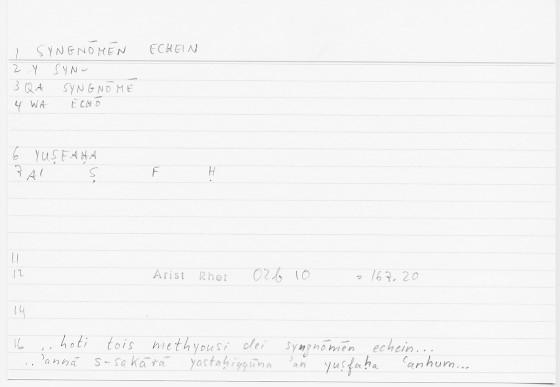 1 SYNGNŌMĒN ECHEIN
2 Y SYN-
3 QA SYNGNŌMĒ
4 WA ECHŌ
6 YUṢFAḤA
7 A1 Ṣ F Ḥ
11
12 Arist Rhet 02b 10 = 167.20
14
16 ..hoti tois methyousi dei syngnōmēn echein...
..'anna s-sakārā yastaḥiqqūna 'an yuṣfaḥa ʿanhum...